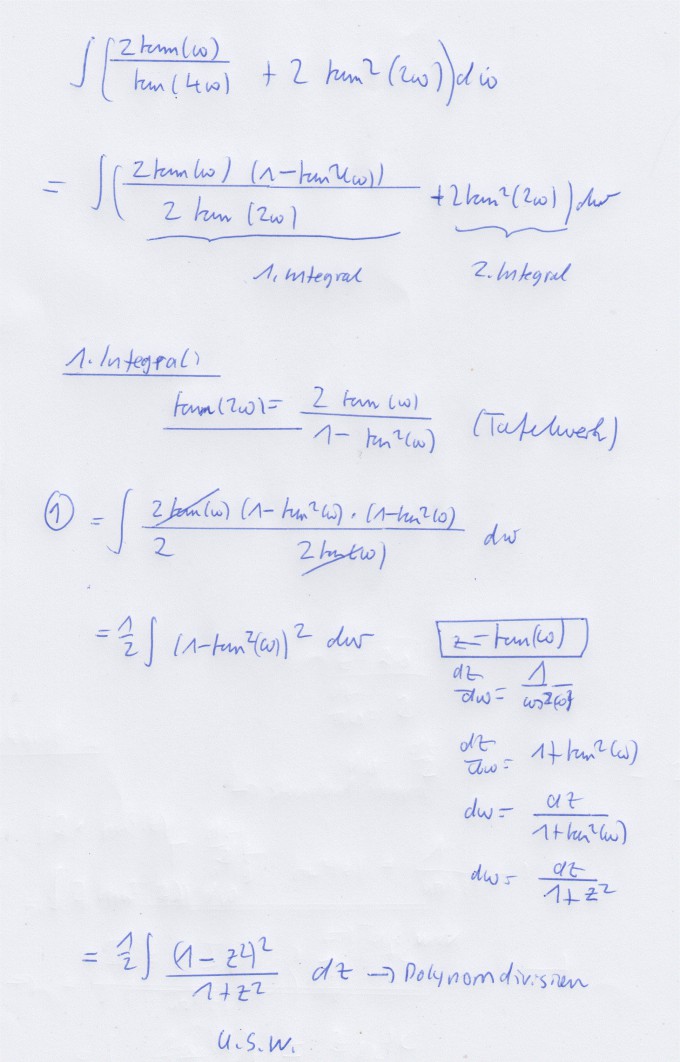 ∫(2tan(ω)/tan(4ω) + 2 tan²(2ω))dω
= ∫(2tan(ω) (1-tan²(ω))/2 tan(2ω) +2tan²(2ω))dω
1. Integral 2. Integral
1. Integral:
tan(2ω)= 2 tan(ω)/1- tan²(ω) (Tafelwerk)
① = ∫ 2tan(ω) (1-tan²(ω)) · (1-tan²(ω)/2 2tan(ω) dω
= 1/2 ∫ (1-tan²(ω))² dω
z=tan(ω)
dz/dω = 1/cos²(ω)
dz/dω = 1+tan²(ω)
dω= dz/1+tan²(ω)
dω= dz/1+z²
= 1/2 ∫ (1-z²)²/1+z² dz → Polynomdivision
u.s.w.